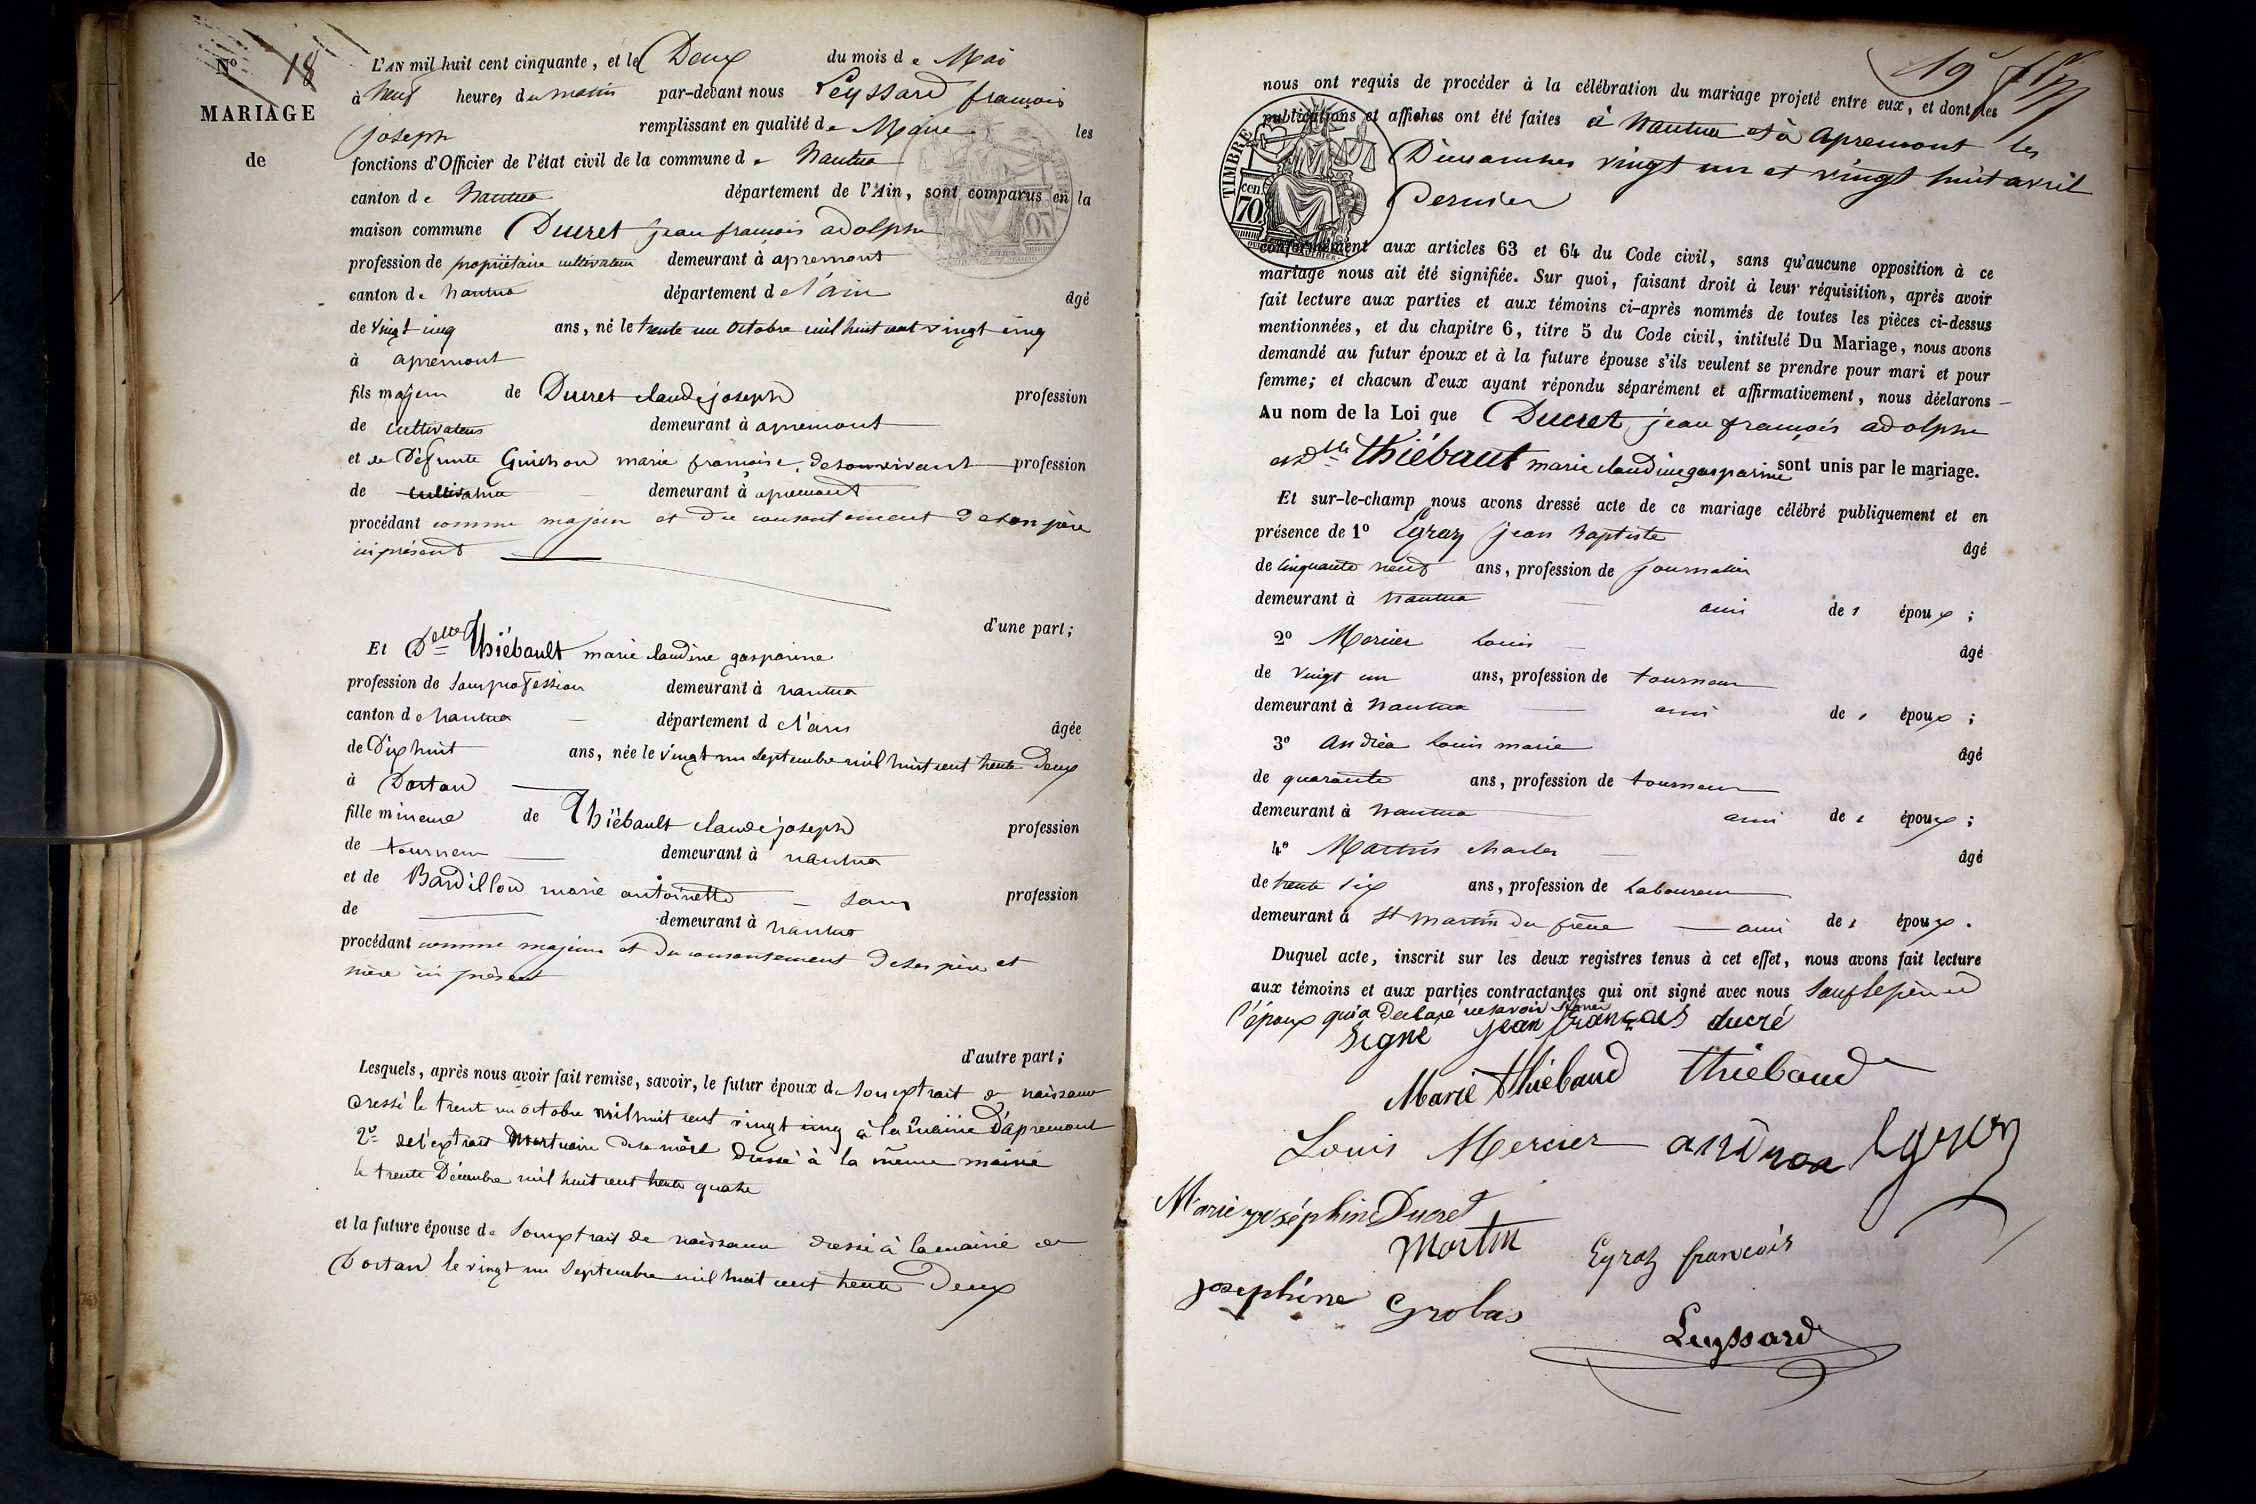 N° 18
MARIAGE
de
L'AN mil huit cent cinquante, et le Deux du mois de Mai
à neuf heures du matin par-devant nous Leyssard françois
joseph remplissant en qualité de Maire les
fonctions d'Officier de l'état civil de la commune de Nantua
canton de Nantua département de l'Ain, sont comparus en la
maison commune Ducret jean françois adolphe
profession de propriétaire cultivateur demeurant à apremont
canton de nantua département de l'ain âgé
de vingt cinq ans, né le trente un octobre mil huit cent vingt cinq
à apremont
fils majeur de Ducret claude joseph profession
de cultivateur demeurant à apremont
et de Défunte Guichon marie françoise, de son vivant profession
de cultivatrice demeurant à apremont
procédant comme majeur et du consentement de son père
ici présent
d'une part;
Et Delle Thiébault marie claudine gasparine
profession de sans profession demeurant à nantua
canton de nantua département de l'ain âgée
de Dix huit ans, née le vingt un septembre mil huit cent trente Deux
à Dortan
fille mineure de Thiébault claude joseph profession
de tourneur demeurant à nantua
et de Bardillod marie antoinette sans profession
de demeurant à nantua
procédant comme majeure et du consentement de ses père et
mère ici présent
d'autre part;
Lesquels, après nous avoir fait remise, savoir, le futur époux de son extrait de naissance
dressé le trente un octobre mil huit cent vingt cinq à la mairie D'apremont
2° de l'extrait mortuaire de sa mère dressé à la même mairie
le trente Décembre mil huit cent trente quatre
et la future épouse de son extrait de naissance dressé à la mairie de
Dortan le vingt un septembre mil huit cent trente Deux
19
nous ont requis de procéder à la célébration du mariage projeté entre eux, et dont les
publications et affiches ont été faites à Nantua et à apremont les
Dimanches vingt un et vingt huit avril
Dernier
TIMBRE
70 cen.
conformément aux articles 63 et 64 du Code civil, sans qu'aucune opposition à ce
mariage nous ait été signifiée. Sur quoi, faisant droit à leur réquisition, après avoir
fait lecture aux parties et aux témoins ci-après nommés de toutes les pièces ci-dessus
mentionnées, et du chapitre 6, titre 5 du Code civil, intitulé Du Mariage, nous avons
demandé au futur époux et à la future épouse s'ils veulent se prendre pour mari et pour
femme; et chacun d'eux ayant répondu séparément et affirmativement, nous déclarons
Au nom de la Loi que Ducret jean françois adolphe
et Delle Thiébaut marie claudine gasparine sont unis par le mariage.
Et sur-le-champ nous avons dressé acte de ce mariage célébré publiquement et en
présence de 1° Egraz jean Baptiste âgé
de cinquante neuf ans, profession de journalier
demeurant à nantua ami de l'époux;
2° Mercier Louis âgé
de vingt un ans, profession de tourneur
demeurant à nantua ami de l'époux;
3° andréa Louis marie âgé
de quarante ans, profession de tourneur
demeurant à nantua ami de l'époux;
4° Martin charles âgé
de trente six ans, profession de Laboureur
demeurant à St martin du frêne ami de l'époux.
Duquel acte, inscrit sur les deux registres tenus à cet effet, nous avons fait lecture
aux témoins et aux parties contractantes qui ont signé avec nous sauf le père de
l'époux qui a déclaré ne savoir signer
signé jean françois ducré
Marie thiebaud thiebaud
Louis Mercier andrea
Marie joséphine Ducret
Martin Egraz francois
josephine Grobas
Leyssard